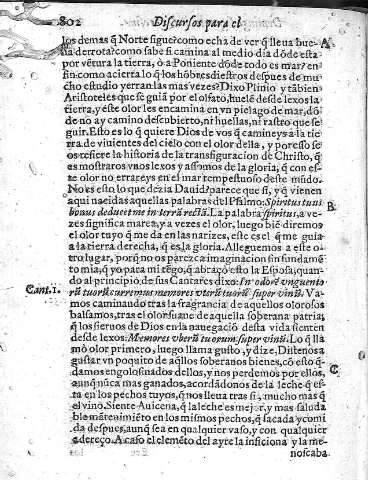 802 Discursos para el
los demas q̃ Norte sigue? como echa de ver q̃ lleua bue-
na derrota? como sabe si camina al medio dia dõde esta
por vẽtura la tierra, ò a Poniente dõde todo es mar? en
fin como acierta lo q̃ los hõbres diestros despues de mu-
cho estudio yerran las mas vezes? Dixo Plinio y tãbien
Aristoteles que se guia por el olfato, huele desde lexos la
tierra, y este olor les encamina en vn pielago de mar, dõ
de no ay camino descubierto, ni huellas, ni rastro que se
guir. Esto es lo q̃ quiere Dios de vos q̃ camineys a la tie
rra de viuientes del cielo con el olor della, y por esso se
os refiere la historia de la transfiguracion de Christo, q̃
es mostraros vnos lexos y assomos de la gloria, q̃ con es-
te olor no errareys en el mar tempestuoso deste mũdo.
No es esto lo que dezia Dauid? parece que si, y q̃ vienen
aqui nacidas aquellas palabras del Psalmo: Spiritus tuus
bonus deducet me in terrã rectã. La palabra spiritus, a ve-
zes significa marea, y a vezes el olor, luego biẽ diremos
el olor tuyo q̃ me da en las narizes, este es el q̃ me guia
a la tierra derecha, q̃ es la gloria. Alleguemos a este o-
tro lugar, porq̃ no os parezca imaginacion sin fundamẽ
to mia, q̃ yo para mi tẽgo, q̃ abraço esto la Esposa, quan-
do al principio de sus Cantares dixo: In odorẽ vnguento
rũ tuorũ curremus memores vberũ tuorũ super vinũ. Va-
mos caminando tras la fragrancia de aquellos olorosos
balsamos, tras el olor suaue de aquella soberana patria,
q̃ los sieruos de Dios en la nauegaciõ desta vida sienten
desde lexos: Memores vberũ tuorum super vinũ. Lo q̃ lla
mò olor primero, luego llama gusto, y dize, Distenos a
gustar vn poquito de aq̃llos soberanos bienes, cõ esto q̃
damos engolosinados dellos, y nos perdemos por ellos,
aunq̃ nũca mas ganados, acordãdonos de la leche q̃ es-
ta en los pechos tuyos, q̃ nos lleua tras si, mucho mas q̃
el vino. Siente Auicena, q̃ la leche es mejor, y mas saluda
ble mãtenimiẽto en los mismos pechos, q̃ sacada y comi
da despues, aunq̃ sea en qualquier vaso, y con qualquier
adereço. A caso el elemẽto del ayre la inficiona y la me-
noscaba
B.
Cant. 1.
C